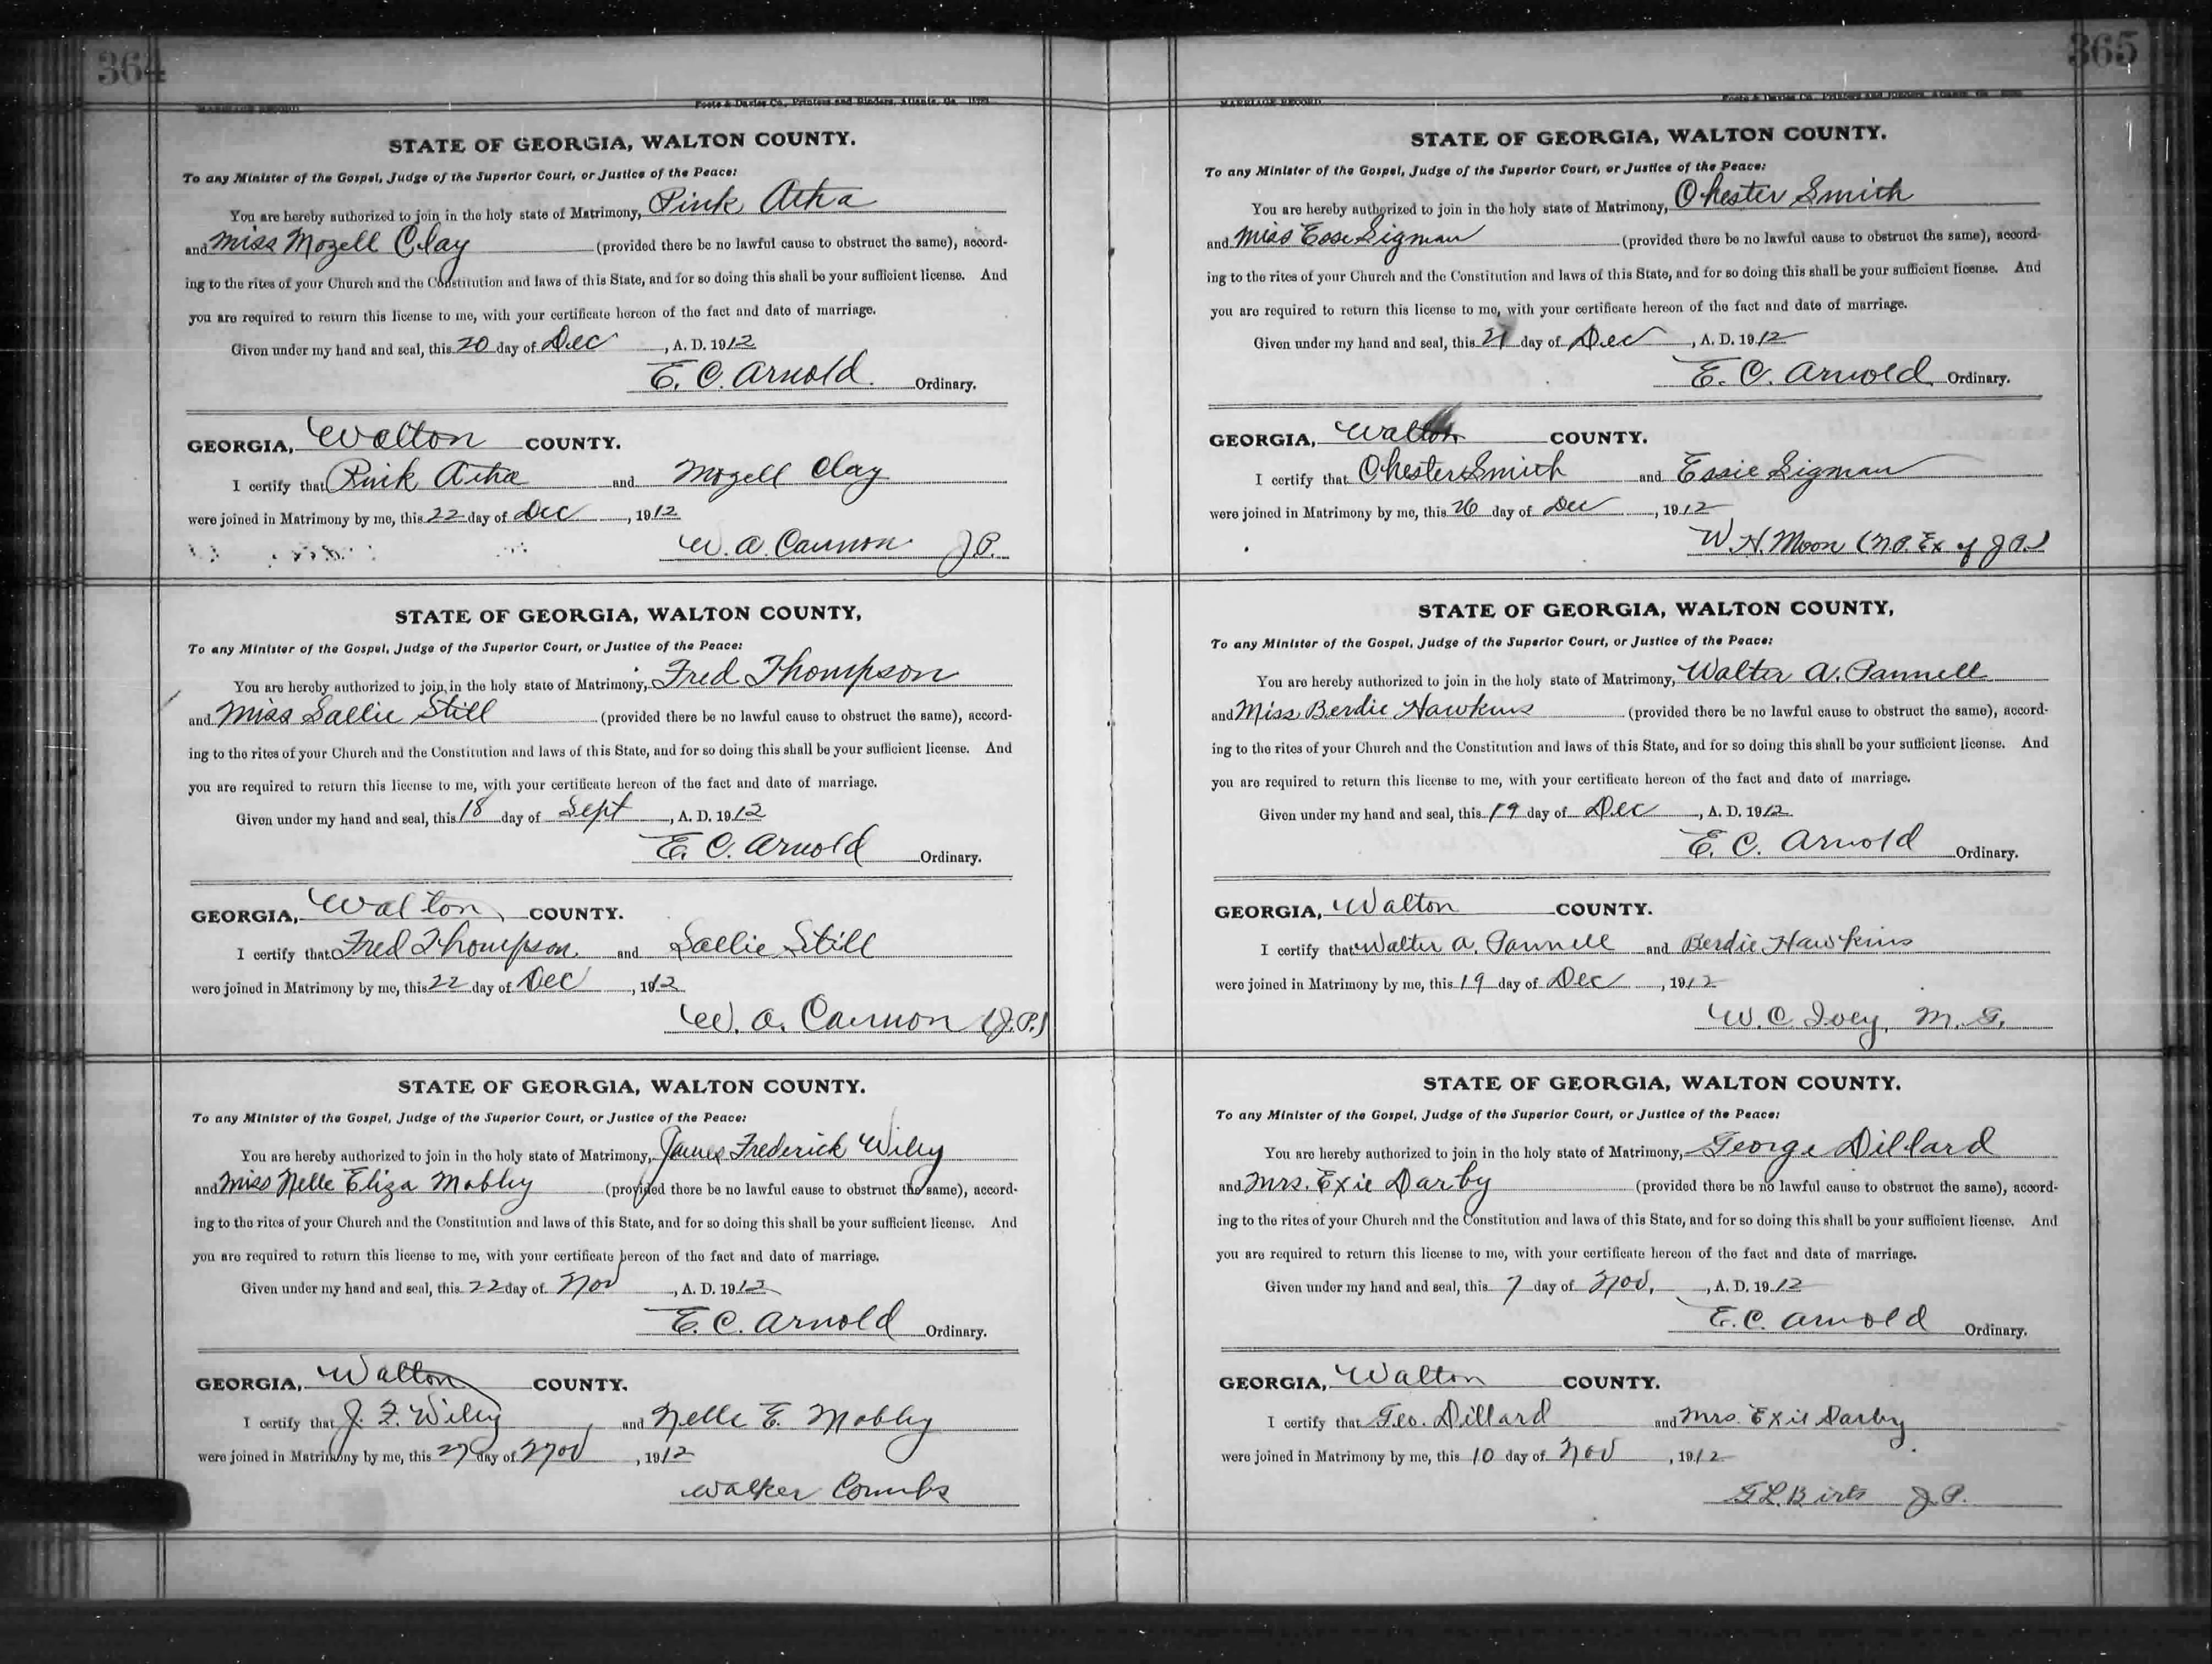 364
MARRIAGE RECORD
Foote & Davies Co., Printers and Binders, Atlanta, Ga.
STATE OF GEORGIA, WALTON COUNTY.
To any Minister of the Gospel, Judge of the Superior Court, or Justice of the Peace:
You are hereby authorized to join in the holy state of Matrimony, Pink Atha
and Miss Mozell Clay (provided there be no lawful cause to obstruct the same), accord-
ing to the rites of your Church and the Constitution and laws of this State, and for so doing this shall be your sufficient license. And
you are required to return this license to me, with your certificate hereon of the fact and date of marriage.
Given under my hand and seal, this 20 day of Dec, A. D. 1912
E. C. Arnold Ordinary.
GEORGIA, Walton COUNTY.
I certify that Pink Atha and Mozell Clay
were joined in Matrimony by me, this 22 day of Dec, 1912
W. A. Cannon J.P.
STATE OF GEORGIA, WALTON COUNTY,
To any Minister of the Gospel, Judge of the Superior Court, or Justice of the Peace:
You are hereby authorized to join in the holy state of Matrimony, Fred Thompson
and Miss Sallie Still (provided there be no lawful cause to obstruct the same), accord-
ing to the rites of your Church and the Constitution and laws of this State, and for so doing this shall be your sufficient license. And
you are required to return this license to me, with your certificate hereon of the fact and date of marriage.
Given under my hand and seal, this 18 day of Sept, A. D. 1912
E. C. Arnold Ordinary.
GEORGIA, Walton COUNTY.
I certify that Fred Thompson and Sallie Still
were joined in Matrimony by me, this 22 day of Dec, 1912
W. A. Cannon (J.P.)
STATE OF GEORGIA, WALTON COUNTY.
To any Minister of the Gospel, Judge of the Superior Court, or Justice of the Peace:
You are hereby authorized to join in the holy state of Matrimony, James Frederick Wiley
and Miss Nelle Eliza Mobley (provided there be no lawful cause to obstruct the same), accord-
ing to the rites of your Church and the Constitution and laws of this State, and for so doing this shall be your sufficient license. And
you are required to return this license to me, with your certificate hereon of the fact and date of marriage.
Given under my hand and seal, this 22 day of Nov, A. D. 1912
E. C. Arnold Ordinary.
GEORGIA, Walton COUNTY.
I certify that J. F. Wiley and Nelle E. Mobley
were joined in Matrimony by me, this 27 day of Nov, 1912
Walker Combs
365
MARRIAGE RECORD
Foote & Davies Co., Printers and Binders, Atlanta, Ga.
STATE OF GEORGIA, WALTON COUNTY.
To any Minister of the Gospel, Judge of the Superior Court, or Justice of the Peace:
You are hereby authorized to join in the holy state of Matrimony, Chester Smith
and Miss Essie Sigman (provided there be no lawful cause to obstruct the same), accord-
ing to the rites of your Church and the Constitution and laws of this State, and for so doing this shall be your sufficient license. And
you are required to return this license to me, with your certificate hereon of the fact and date of marriage.
Given under my hand and seal, this 21 day of Dec, A. D. 1912
E. C. Arnold Ordinary.
GEORGIA, Walton COUNTY.
I certify that Chester Smith and Essie Sigman
were joined in Matrimony by me, this 26 day of Dec, 1912
W. H. Moon (N.P. Ex of J.P.)
STATE OF GEORGIA, WALTON COUNTY,
To any Minister of the Gospel, Judge of the Superior Court, or Justice of the Peace:
You are hereby authorized to join in the holy state of Matrimony, Walter A. Pannell
and Miss Berdie Hawkins (provided there be no lawful cause to obstruct the same), accord-
ing to the rites of your Church and the Constitution and laws of this State, and for so doing this shall be your sufficient license. And
you are required to return this license to me, with your certificate hereon of the fact and date of marriage.
Given under my hand and seal, this 19 day of Dec, A. D. 1912
E. C. Arnold Ordinary.
GEORGIA, Walton COUNTY.
I certify that Walter A. Pannell and Berdie Hawkins
were joined in Matrimony by me, this 19 day of Dec, 1912
W. C. Ivey, M. G.
STATE OF GEORGIA, WALTON COUNTY.
To any Minister of the Gospel, Judge of the Superior Court, or Justice of the Peace:
You are hereby authorized to join in the holy state of Matrimony, George Dillard
and Mrs. Exie Darby (provided there be no lawful cause to obstruct the same), accord-
ing to the rites of your Church and the Constitution and laws of this State, and for so doing this shall be your sufficient license. And
you are required to return this license to me, with your certificate hereon of the fact and date of marriage.
Given under my hand and seal, this 7 day of Nov., A. D. 1912
E. C. Arnold Ordinary.
GEORGIA, Walton COUNTY.
I certify that Geo. Dillard and Mrs. Exie Darby
were joined in Matrimony by me, this 10 day of Nov, 1912
G. L. Birts J. P.